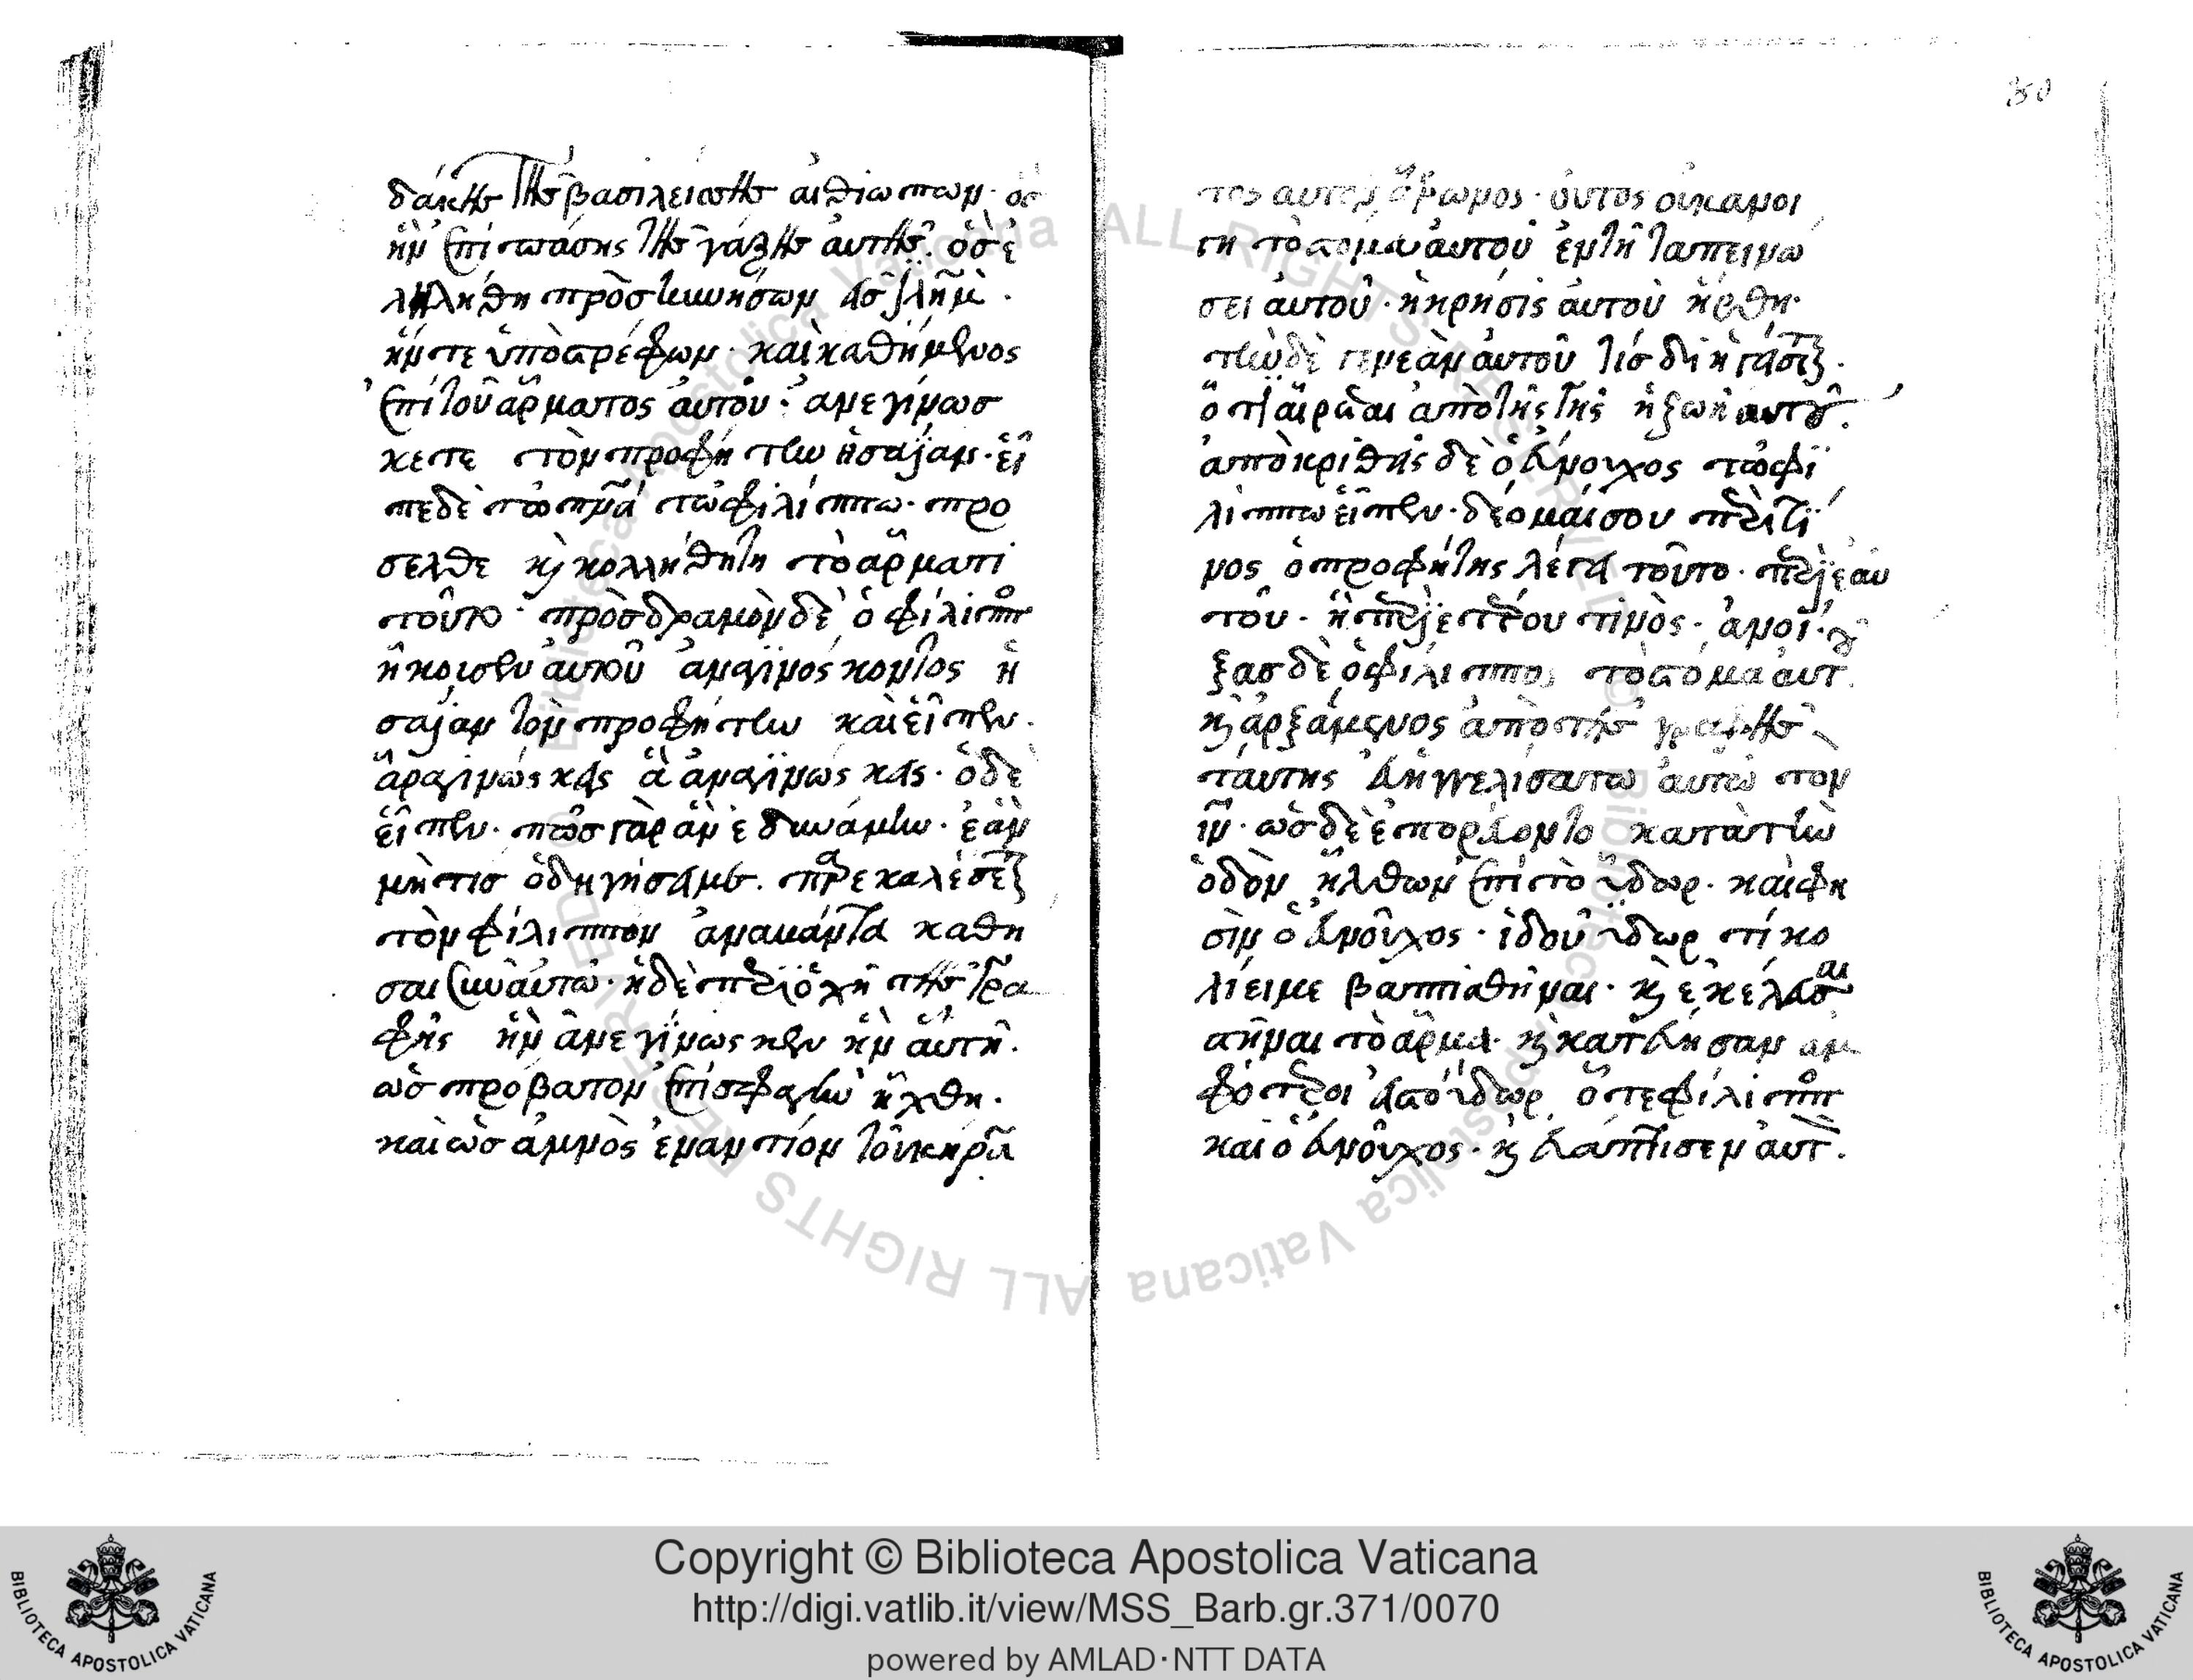 δάκης της βασιλείσσης αἰθϊώπων· ὃς
ἦν ἐπὶ πάσης της γάζης αὐτῆς. ὃς ἐ
ληλήθη πρὸσκυνήσων εἰς ἰλημ̃.
ἦν τε ὑπὸστρέφων· καὶ καθήμενος
ἐπὶ τοῦ ἅρματος ἀυτοῦ· ἀνεγίνωσ
κετε τὸν προφήτην ἠσαΐαν· εἶ
πε δὲ τὸ πνᾶ τῶ φιλίππω· προ
σελθε κὶ κολλήθητη τὸ ἅρματι
τοῦτο· πρὸσδραμὸν δὲ ὁ φίλιππο
ἤκουσεν αὐτοῦ ἀναγινόσκοντος ἠ
σαΐαν τὸν προφήτην καὶ εἶπεν.
ἆρα γινώσκεις ἃ ἀναγινώσκεις· ὁ δὲ
εἶπεν· πῶς γὰρ ἂν ἐδυνάμην· ἐὰν
μή τις ὁδηγήσει με. παρεκαλέσε τε
τὸν φίλιππον ἀναβάντα καθη
σαι σὺν ἀυτῶ· ἡ δὲ περϊὁχὴ της γρα
φῆς ἣν ἀνεγίνωσκεν ἦν αὕτη.
ὡς πρόβατον ἐπὶ σφαγὴν ἤχθη.
καὶ ὡς ἀμνὸς ἐναντίον τοῦ κήρα
τος αυτον ἄφωνος· όυτος ουκ ανοι
γη τὸ στομα ἀυτοῦ ἐν τῆ ταπεινω
σει ἀυτοῦ· ἡ κρησις ἀυτοὺ ἤρθη·
τὴν δὲ γενεὰν ἀυτοῦ τίς διηγάσεται.
ὅτι αἴρεται ἀπὸ τῆς γῆς ἡ ζωὴ αυτοῦ.
ἀπὸκριθεὶς δὲ ὁ ευνουχος τῶ φι
λίππω εἶπεν· δέομαί σου περὶ τί
νος ὁ προφήτης λέγει τοῦτο· περὶ ἑαυ
τοῦ· ἢ περὶ ετέρου τινὸς· ἀνοί·
ξας δὲ ὁ φίλιππος τὸ στόμα ἀυτ
κὶ ἀρξάμενος ἀπὸ τῆς γραφῆς
τάυτης ευηγγελίσατω ἀυτῶ τον
ἰν̃· ὡς δὲ ἐπορεύοντο κατὰ τὴν
ὁδὸν ἦλθων ἐπί τὸ ὕδωρ. καί φη
σὶν ὁ ευνοῦχος· ἰδοὺ ὕδωρ τί κο
λίει με βαπτισθῆναι· κὶ ἐκέλευσαι
στῆναι τὸ ἅρμα· κὶ κατέβησαν αμ
φότεροι εἰς τό ὕδωρ ὅ τε φίλιππο
καὶ ὁ ευνοῦχος· κὶ ἐβάπτισεν αὐτ.
Copyright © Biblioteca Apostolica Vaticana
http://digi.vatlib.it/view/MSS_Barb.gr.371/0070
powered by AMLAD·NTT DATA
BIBLIOTECA APOSTOLICA VATICANA
BIBLIOTECA APOSTOLICA VATICANA